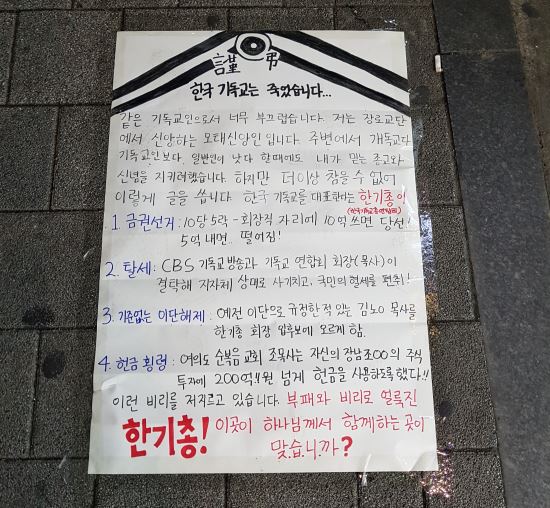 謹 弔
한국 기독교는 죽었습니다...
같은 기독교인으로서 너무 부끄럽습니다. 저는 장로교단
에서 신앙하는 모태신앙인 입니다. 주변에서 개독교다
기독교인보다. 일반인이 낫다 할때에도 내가 믿는 종교와
신념을 지키려했습니다. 하지만 더이상 참을 수 없어
이렇게 글을 씁니다. 한국 기독교를 대표한다는 한기총이!
(한국기독교총연합회)
1. 금권선거 : 10당 5락 - 회장직 자리에 10억 쓰면 당선!
5억 내면.. 떨어짐!
2. 탈세 : CBS 기독교방송과 기독교 연합회 회장(목사)이
결탁해 지자체 상대로 사기치고, 국민의 혈세를 편취!
3. 기준없는 이단해제 : 예전 이단으로 규정한적 있는 김노아 목사를
한기총 회장 입후보에 오르게 함.
4. 헌금 횡령 : 여의도 순복음 교회 조목사는 자신의 장남조OO의 주식
투자에 200억원 넘게 헌금을 사용하도록했다!!
이런 비리를 저지르고 있습니다. 부패와 비리로 얼룩진
한기총! 이곳이 하나님께서 함께하는 곳이
맞습니까?